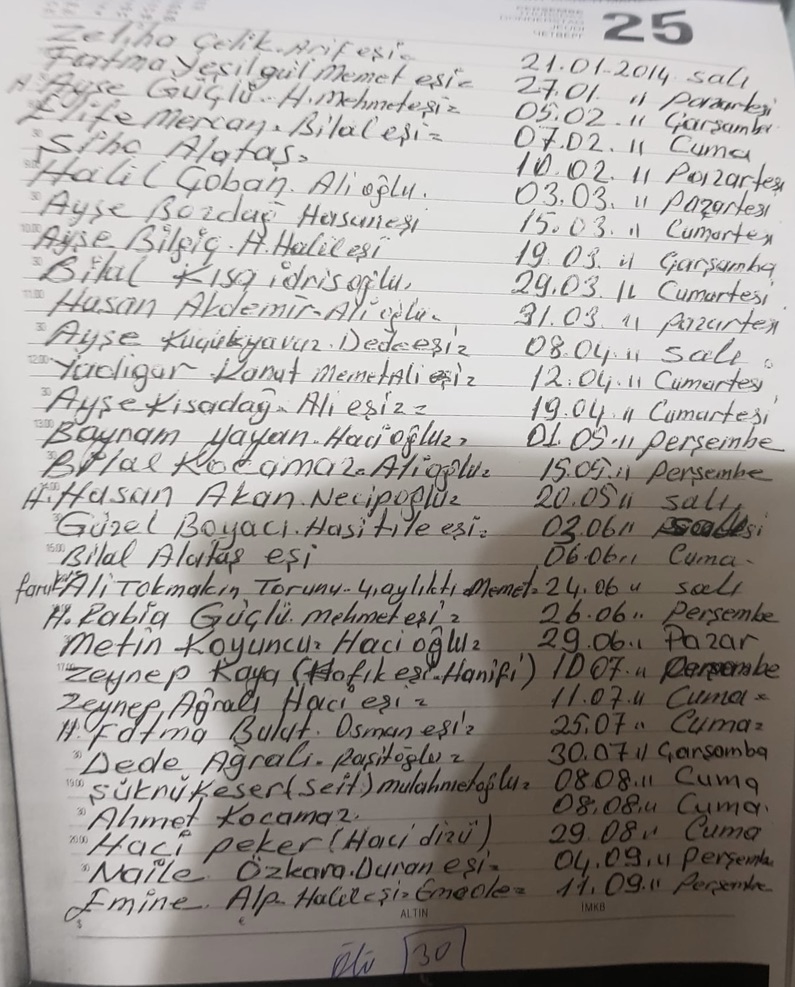 PERŞEMBE
25
Zeliha Çelik. Arif eşi= 21.01.2014 salı
Fatma Yeşilgül Memet eşi= 27.01. " Pazartesi
H. Ayşe Güçlü. H. Mehmeteşi= 05.02. " Çarşamba
Elife Mercan. Bilal eşi= 07.02. " Cuma
Alataş. 10.02. " Pazartesi
Halil Çoban. Ali oğlu. 03.03. " Pazartesi
Ayşe Bozdağ Hasaneşi 15.03. " Cumartesi
Ayşe Bilgiç. H. Halil eşi 19.03. " Çarşamba
Bilal Kısa idrisoğlu, 29.03. " Cumartesi
Hasan Akdemir. Ali oğlu. 31.03. " Pazartesi
Ayşe Küçükyavuz. Dede eşi= 08.04. " Salı
Yadigar Kanat Memet Ali eşi= 12.04. " Cumartesi
Ayşe Kısadağ. Ali eşi= 19.04. " Cumartesi
Bayram Yayan. Hacioğlu= 01.05. " perşembe
Bilal Kocamaz. Alioğlu= 15.05. " perşembe
H. Hasan Akan. Necipoğlu= 20.05 " salı
Güzel Boyacı. eşi= 03.06 "
Bilal Alataş eşi 06.06. " Cuma.
Ali Tokmakın Torunu. 4.aylıktı Memet= 24.06 " salı
H. Rabia Güçlü. mehmet eşi= 26.06. " Perşembe
Metin Koyuncu= Haci oğlu= 29.06. " Pazar
Zeynep Kaya ( Hanifi) 10.07. " Perşembe
Zeynep Ağralı Haci eşi= 11.07. " Cuma=
H. Fatma Bulut. Osman eşi= 25.07 " Cuma=
Dede Ağralı. Raşitoğlu= 30.07 " Çarşamba
Şükrü Keser (Seit) 08.08. " Cuma
Ahmet Kocamaz. 08.08. " Cuma.
Haci peker (Haci dizü) 29.08 " Cuma
Naile Özkara. Duran eşi= 04.09. " Perşembe
Emine. Alp. Halil eşi= 11.09. " Perşembe
ALTIN İMKB
$ €
Ölü 30